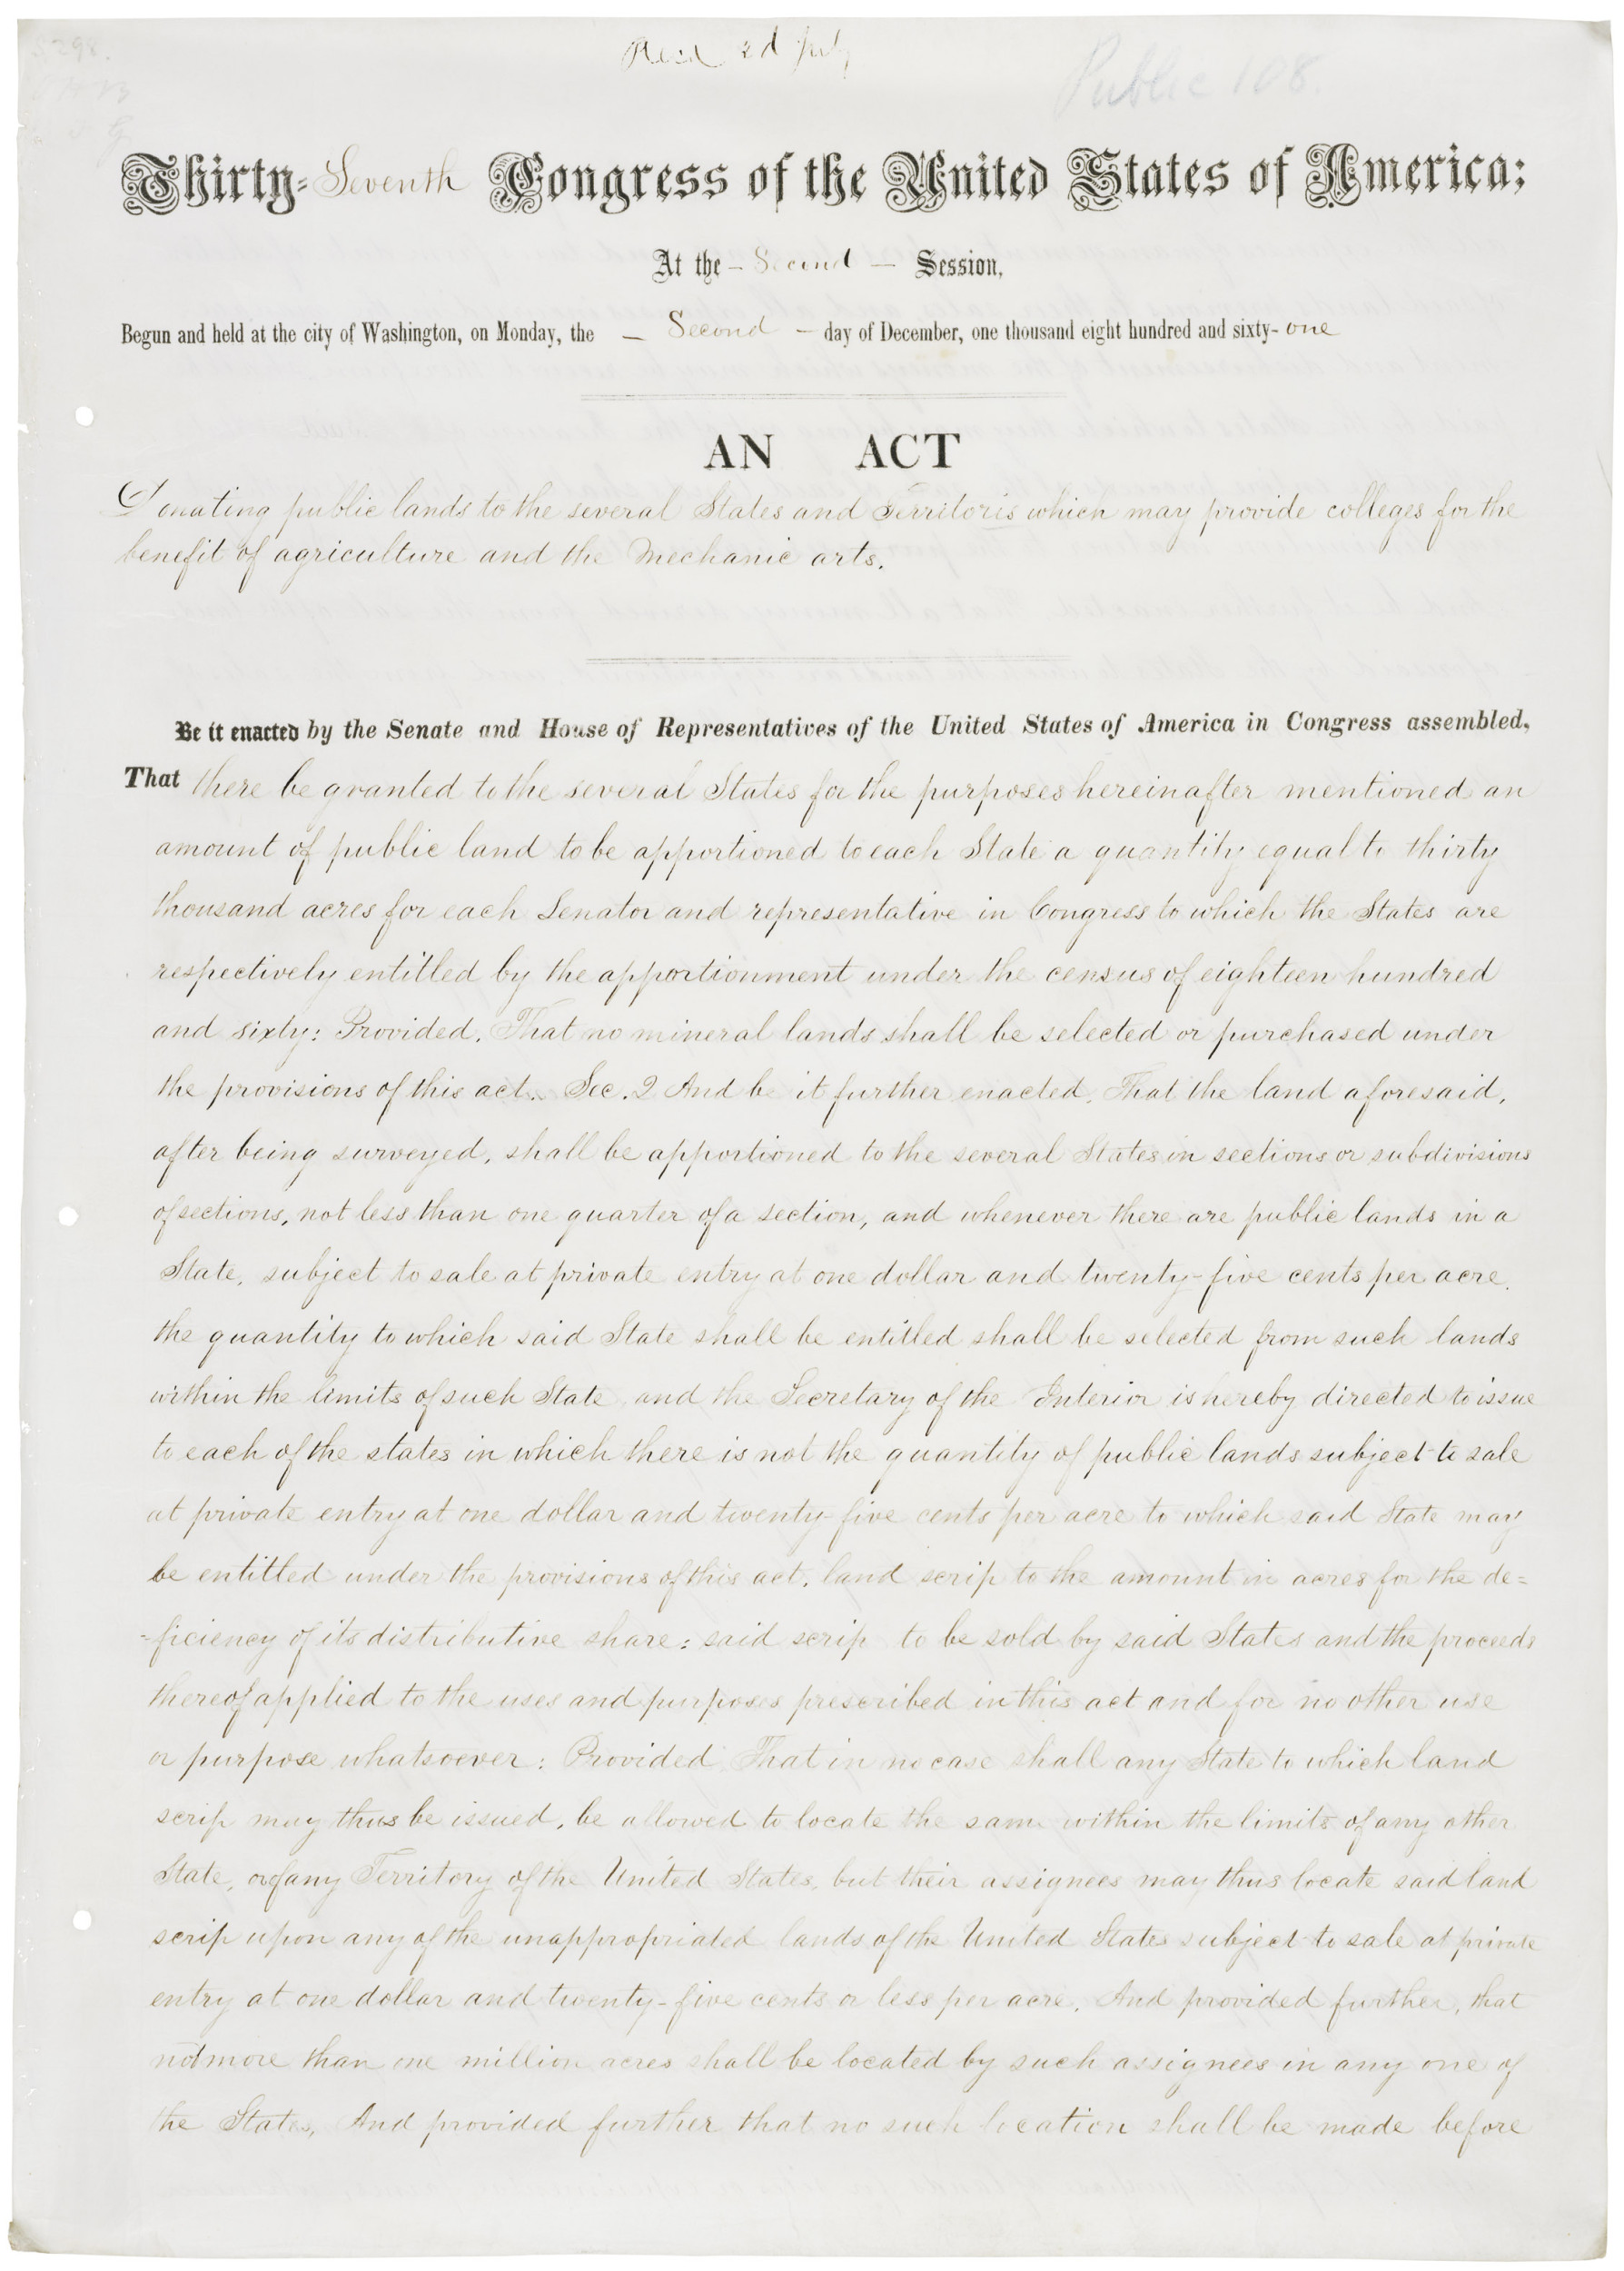 S 298.
Recd 2d July
Public 108.
Thirty-Seventh Congress of the United States of America;
At the - Second - Session,
Begun and held at the city of Washington, on Monday, the - Second - day of December, one thousand eight hundred and sixty-one
AN ACT
Donating public lands to the several States and Territoris which may provide colleges for the
benefit of agriculture and the Mechanic arts.
Be it enacted by the Senate and House of Representatives of the United States of America in Congress assembled,
That there be granted to the several States for the purposes hereinafter mentioned an
amount of public land to be apportioned to each State a quantity equal to thirty
thousand acres for each Senator and representative in Congress to which the States are
respectively entitled by the apportionment under the census of eighteen hundred
and sixty: Provided, That no mineral lands shall be selected or purchased under
the provisions of this act. Sec. 2 And be it further enacted, That the land aforesaid,
after being surveyed, shall be apportioned to the several States in sections or subdivisions
of sections, not less than one quarter of a section, and whenever there are public lands in a
State, subject to sale at private entry at one dollar and twenty-five cents per acre,
the quantity to which said State shall be entitled shall be selected from such lands
within the limits of such State, and the Secretary of the Interior is hereby directed to issue
to each of the states in which there is not the quantity of public lands subject to sale
at private entry at one dollar and twenty-five cents per acre to which said State may
be entitled under the provisions of this act, land scrip to the amount in acres for the de=
=ficiency of its distributive share: said scrip to be sold by said States and the proceeds
thereof applied to the uses and purposes prescribed in this act and for no other use
or purpose whatsoever: Provided, That in no case shall any State to which land
scrip may thus be issued, be allowed to locate the same within the limits of any other
State, or of any Territory of the United States, but their assignees may thus locate said land
scrip upon any of the unappropriated lands of the United States subject to sale at private
entry at one dollar and twenty-five cents or less per acre, And provided further, that
not more than one million acres shall be located by such assignees in any one of
the States, And provided further that no such location shall be made before